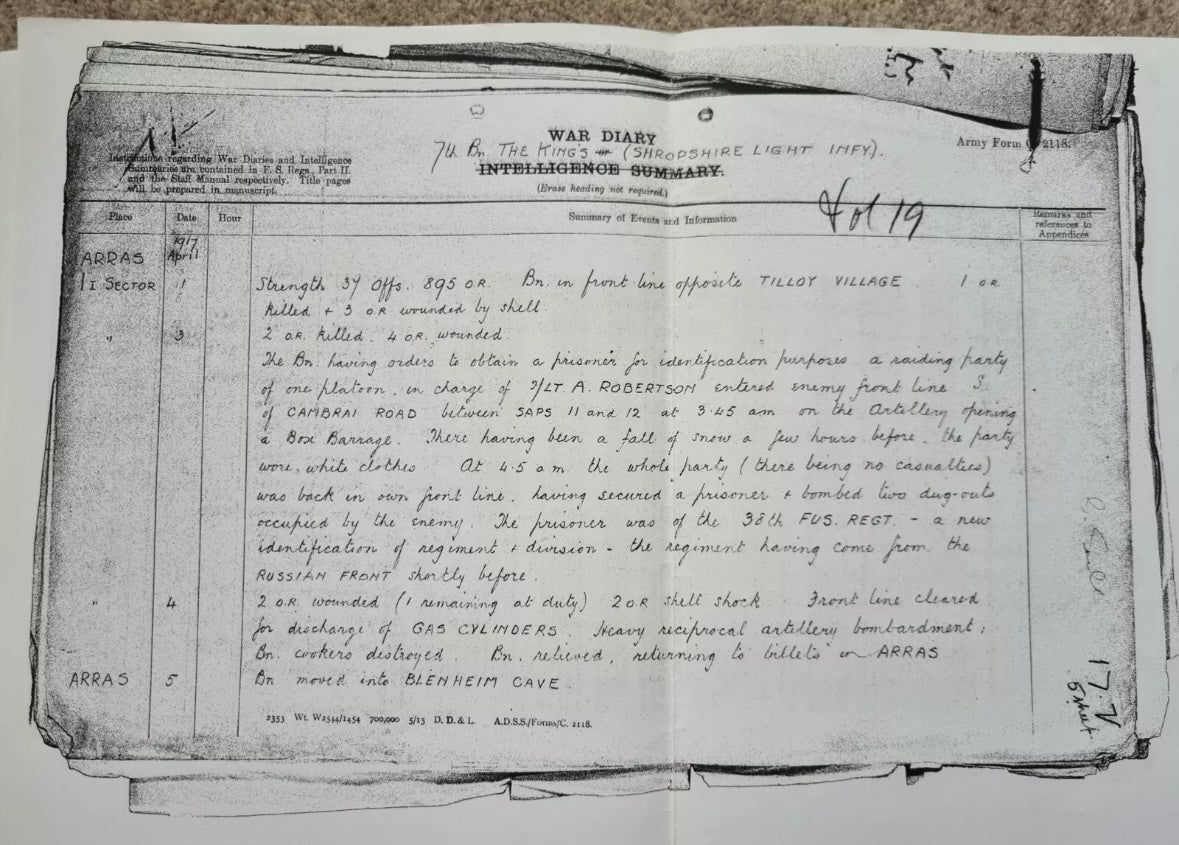 WAR DIARY
Army Form C. 2118.
7th Bn. THE KING'S or (SHROPSHIRE LIGHT INFY).
INTELLIGENCE SUMMARY.
(Erase heading not required.)
Instructions regarding War Diaries and Intelligence
Summaries are contained in F. S. Regs., Part II.
and the Staff Manual respectively. Title pages
will be prepared in manuscript.
Vol 19
Place Date Hour Summary of Events and Information Remarks and
references to
Appendices
1917
ARRAS April
I SECTOR 1 Strength 37 Offs. 895 O.R. Bn. in front line opposite TILLOY VILLAGE. 1 OR
killed + 3 O.R wounded by shell.
" 3 2 O.R. killed. 4 O.R. wounded.
The Bn. having orders to obtain a prisoner for identification purposes, a raiding party
of one platoon, in charge of 2/LT A. ROBERTSON entered enemy front line S.
of CAMBRAI ROAD between SAPS 11 and 12 at 3.45 am on the Artillery opening
a Box Barrage. There having been a fall of snow a few hours before, the party
wore, white clothes At 4.5 a.m. the whole party (there being no casualties)
was back in own front line, having secured a prisoner + bombed two dug-outs
occupied by the enemy. The prisoner was of the 38th FUS. REGT. - a new
identification of regiment + division - the regiment having come from the
RUSSIAN FRONT shortly before.
" 4 2 O.R. wounded (1 remaining at duty) 2 OR shell shock. Front line cleared
for discharge of GAS CYLINDERS. Heavy reciprocal artillery bombardment;
Bn. cookers destroyed. Bn. relieved, returning to billets in ARRAS
ARRAS 5 Bn moved into BLENHEIM CAVE.
2353 Wt. W2544/1454 700,000 5/15 D. D. & L. A.D.S.S./Forms/C. 2118.
17.V
5 sheet